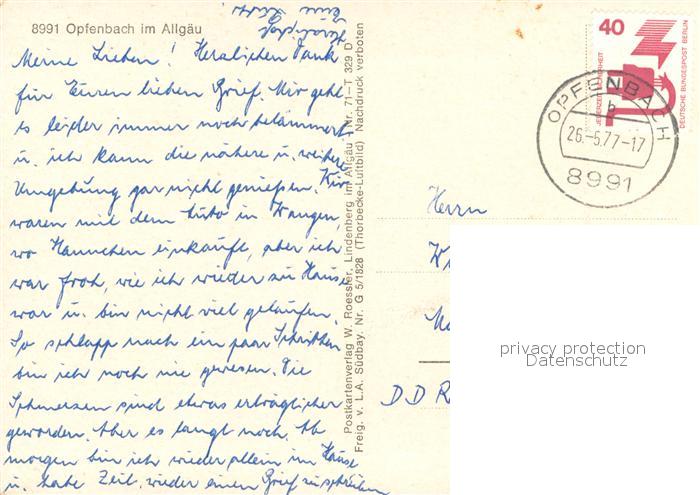 8991 Opfenbach im Allgäu
Meine Lieben! Herzlichen Dank
für Euren lieben Brief. Mir geht
es leider immer noch belämmert
u. ich kann die nähere u. weitere
Umgebung gar nicht genießen. Wir
waren mit dem Auto in Wangen,
wo Hannchen einkaufte, aber ich
war froh, wie ich wieder zu Hause
war u. bin nicht viel gelaufen.
So schlapp nach ein paar Schritten
bin ich noch nie gewesen. Die
Schmerzen sind etwas erträglicher
geworden. Aber es langt noch. Ab
morgen bin ich wieder allein im Hause
u. habe Zeit, wieder einen Brief zu schreiben
Herzlichst
Eure
Postkartenverlag W. Roessler, Lindenberg im Allgäu Nr. 71-T 329 D
Freig. v. L.A. Südbay. Nr. G 5/1828 (Thorbecke-Luftbild) Nachdruck verboten
40
JEDERZEIT SICHERHEIT
DEUTSCHE BUNDESPOST BERLIN
OPFENBACH
b
26.-5.77-17
8991
Herrn
DDR
privacy protection
Datenschutz